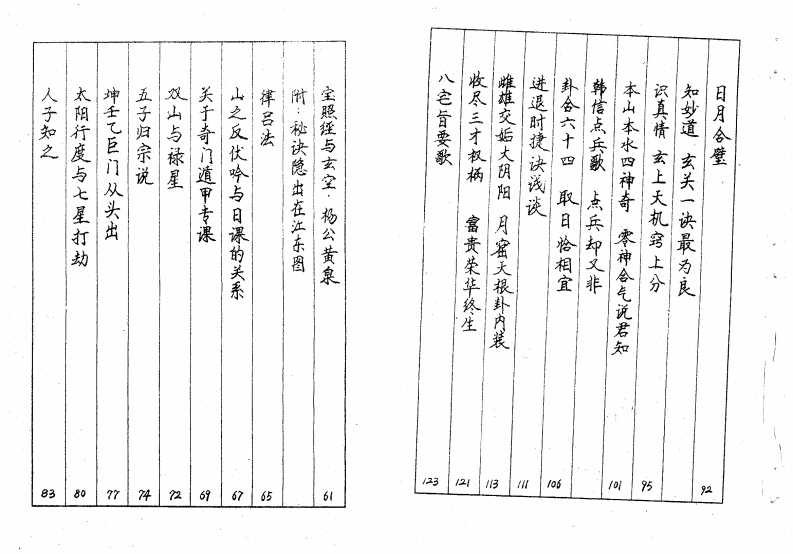 宝照经与玄空·杨公黄泉 61
附：秘诀隐出在江东图
律吕法 65
山之反伏吟与日课的关系 67
关于奇门遁甲专课 69
双山与禄星 72
五子归宗说 74
坤壬乙巨门从头出 77
太阳行度与七星打劫 80
人子知之 83
日月合璧 92
知妙道 玄关一诀最为良
识真情 玄上天机窍上分 95
本山本水四神奇 零神合气说君知 101
韩信点兵歌 点兵却又非
卦合六十四 取日恰相宜 106
进退时捷诀浅谈 111
雌雄交姤大阴阳 月窟天根卦内装 113
收尽三才权柄 富贵荣华终生 121
八宅旨要歌 123